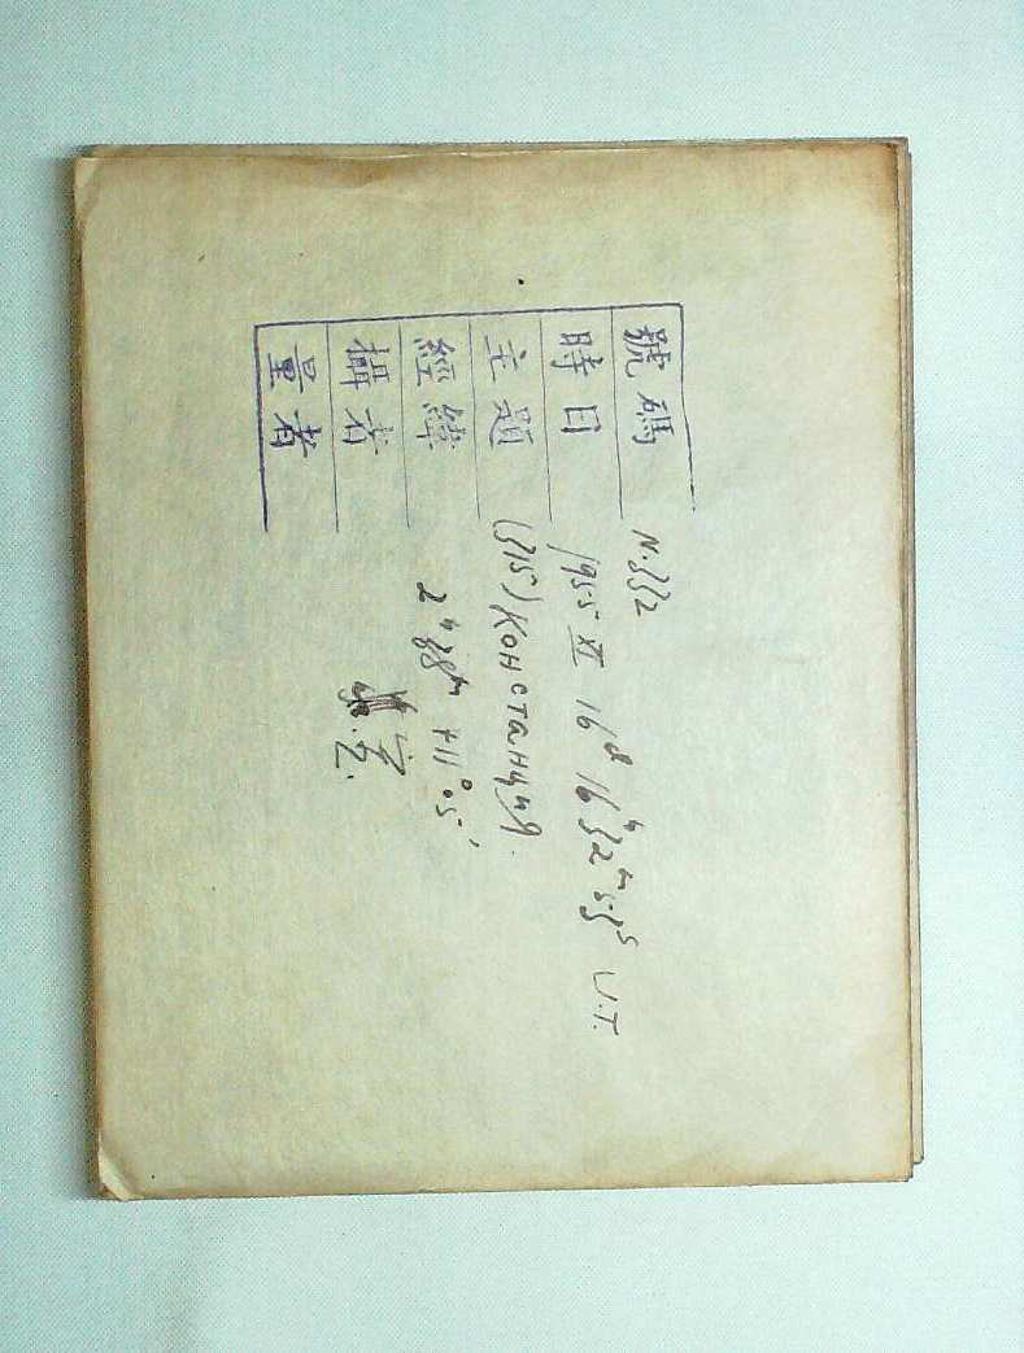 號碼 N.332
時日 1955 XI 16ᵈ 16ʰ 32ᵐ 53ˢ U.T.
主題 (315) Констанция.
經緯 2ʰ 38ᵐ +11° 05′
攝者
量者